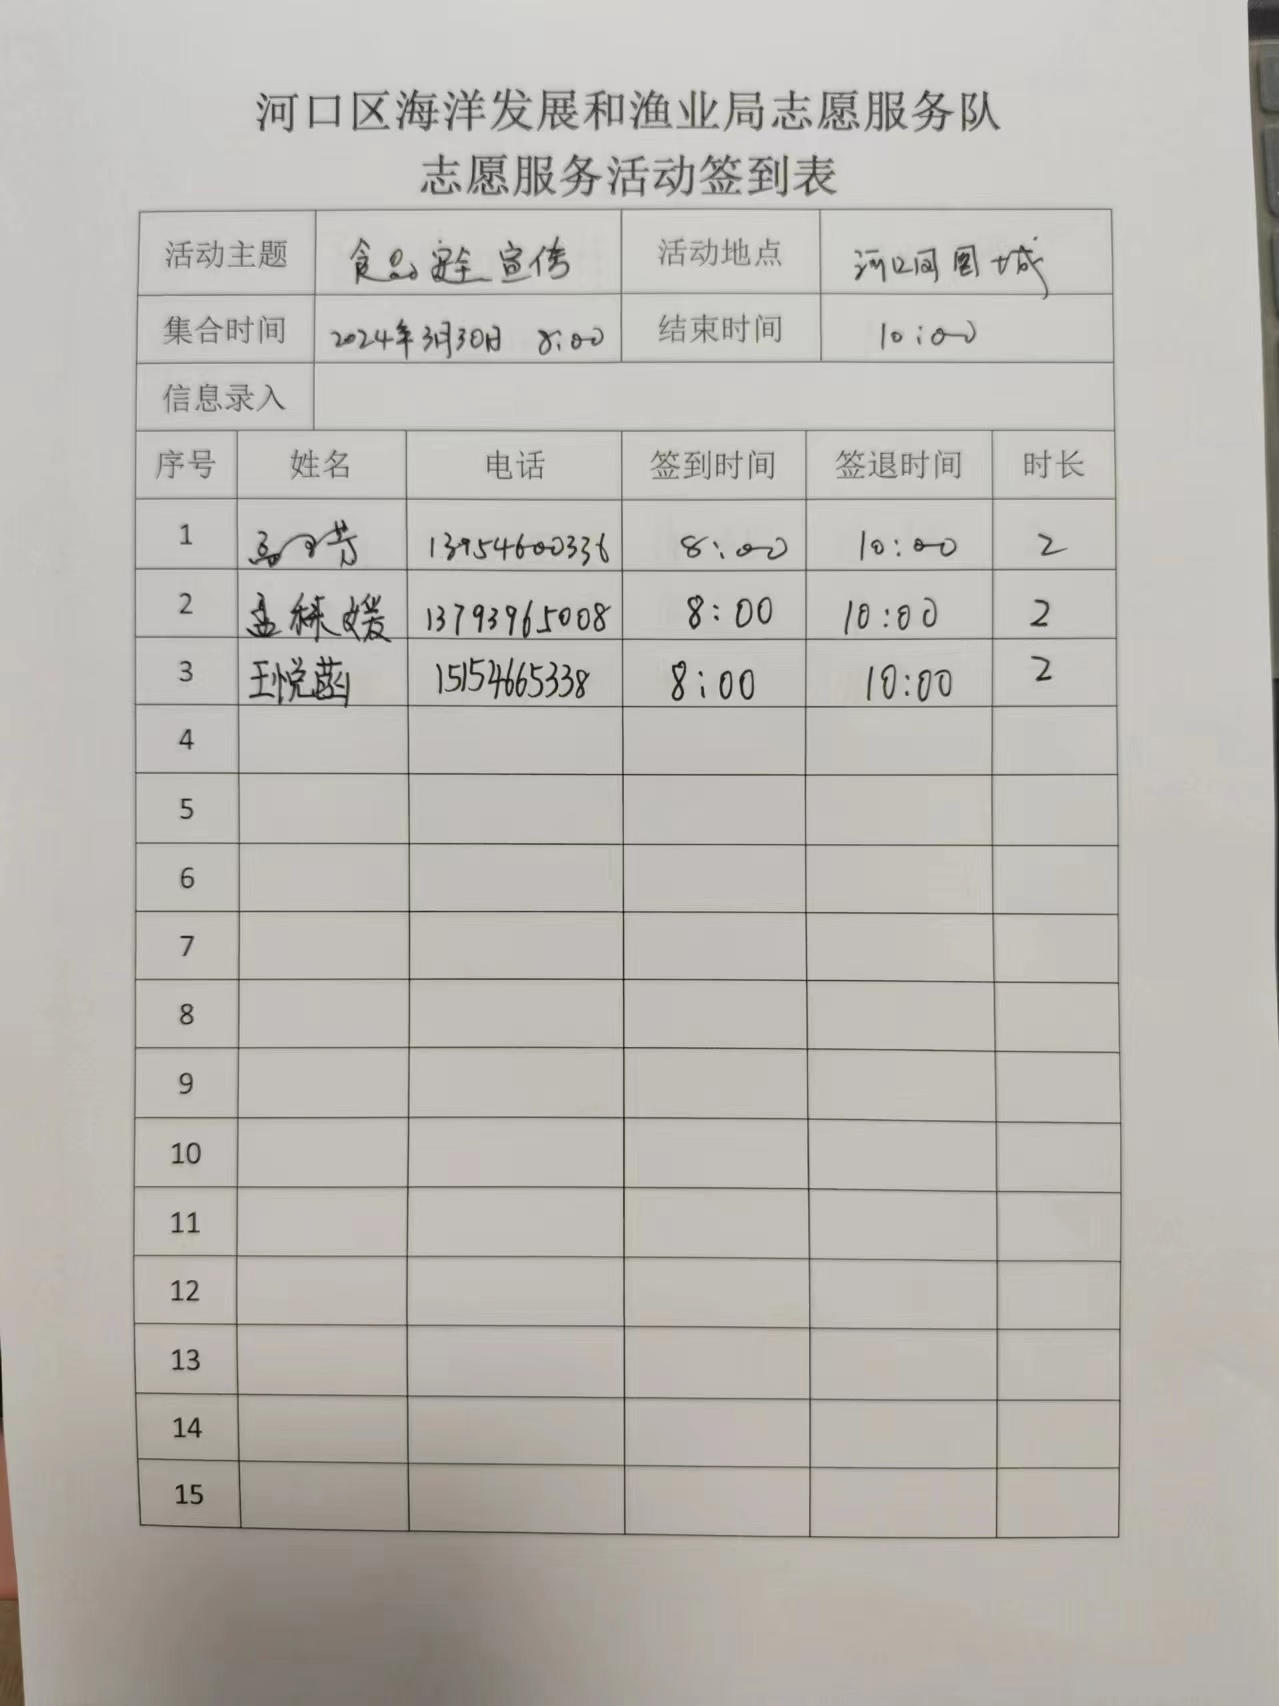 河口区海洋发展和渔业局志愿服务队
志愿服务活动签到表
活动主题 食品安全宣传 活动地点 河口
集合时间 2024年3月30日 8:00 结束时间 10:00
信息录入
序号 姓名 电话 签到时间 签退时间 时长
1 13954600336 8:00 10:00 2
2 孟 媛 13793965008 8:00 10:00 2
3 王悦菡 15154665338 8:00 10:00 2
4
5
6
7
8
9
10
11
12
13
14
15